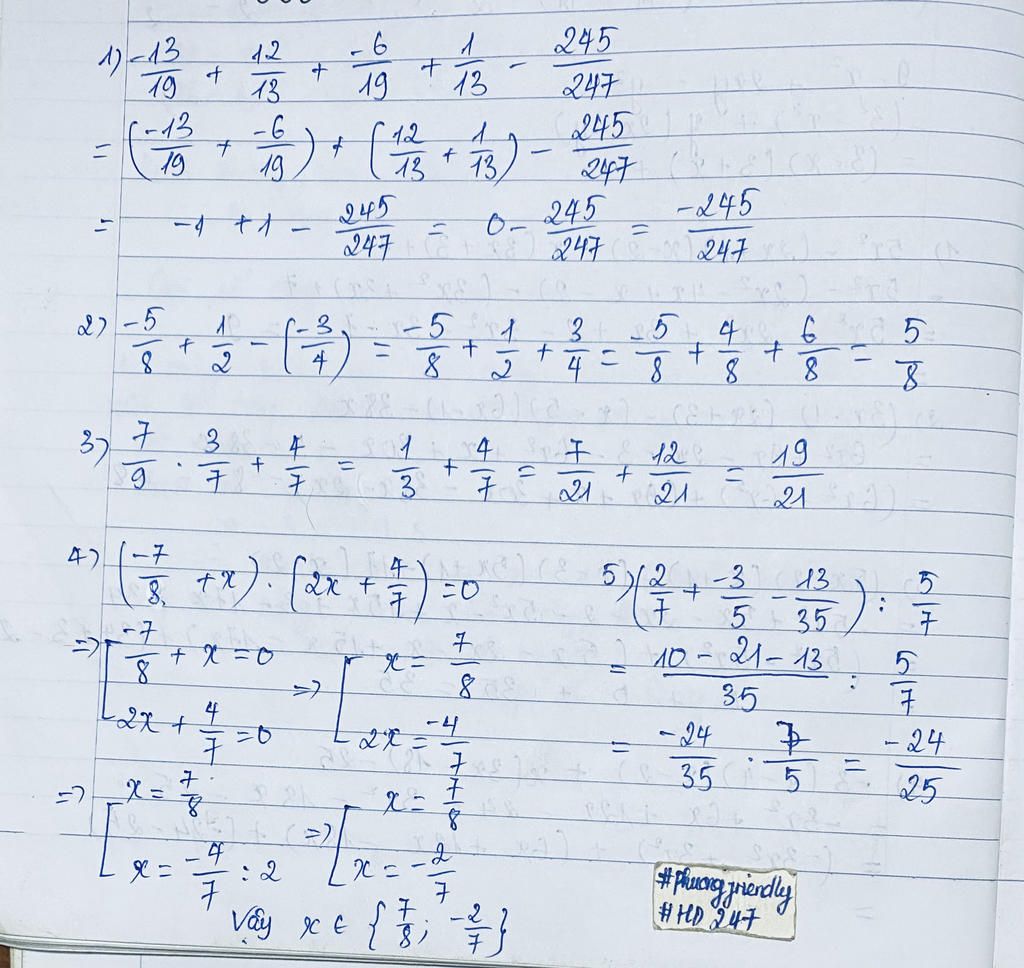 1) -13/19 + 12/13 + -6/19 + 1/13 - 245/247
= (-13/19 + -6/19) + (12/13 + 1/13) - 245/247
= -1 + 1 - 245/247 = 0 - 245/247 = -245/247
2) -5/8 + 1/2 - (-3/4) = -5/8 + 1/2 + 3/4 = -5/8 + 4/8 + 6/8 = 5/8
3) 7/9 . 3/7 + 4/7 = 1/3 + 4/7 = 7/21 + 12/21 = 19/21
4) (-7/8 + x) . (2x + 4/7) = 0
=> [ -7/8 + x = 0 => [ x = 7/8
2x + 4/7 = 0 2x = -4/7
=> [ x = 7/8 => [ x = 7/8
x = -4/7 : 2 x = -2/7
Vậy x ∈ {7/8; -2/7}
5) (2/7 + -3/5 - 13/35) : 5/7
= 10 - 21 - 13/35 : 5/7
= -24/35 . 7/5 = -24/25
#phuongfriendly
#HD 247